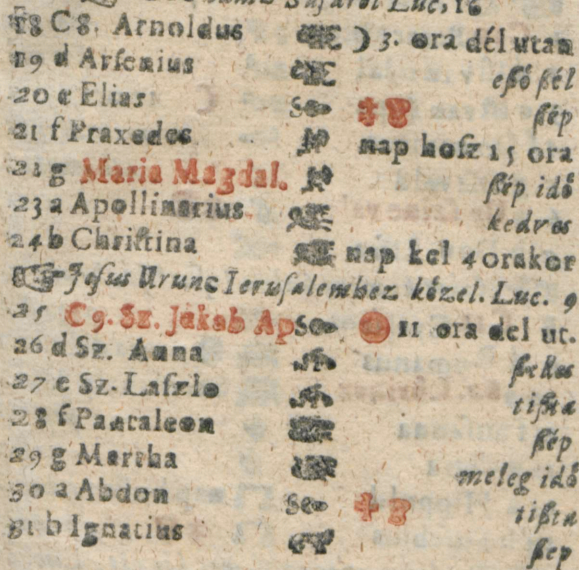 Luc. 16
18 C 8. Arnoldus ☽ 3. ora dél utan
19 d Arsenius esö ßél
20 e Elias ßép
21 f Praxedes nap hosz 15 ora
22 g Maria Magdal. ßép idö
23 a Apollinarius kedves
24 b Christina nap kel 4 orakor
Jesus Urunc Ierusalemhez közel. Luc. 9
25 C 9. Sz. Jakab Ap 11 ora del ut.
26 d Sz. Anna
27 e Sz. Laszlo tißta
28 f Pantaleon ßép
29 g Martha meleg idö
30 a Abdon tißta
31 b Ignatius ßep